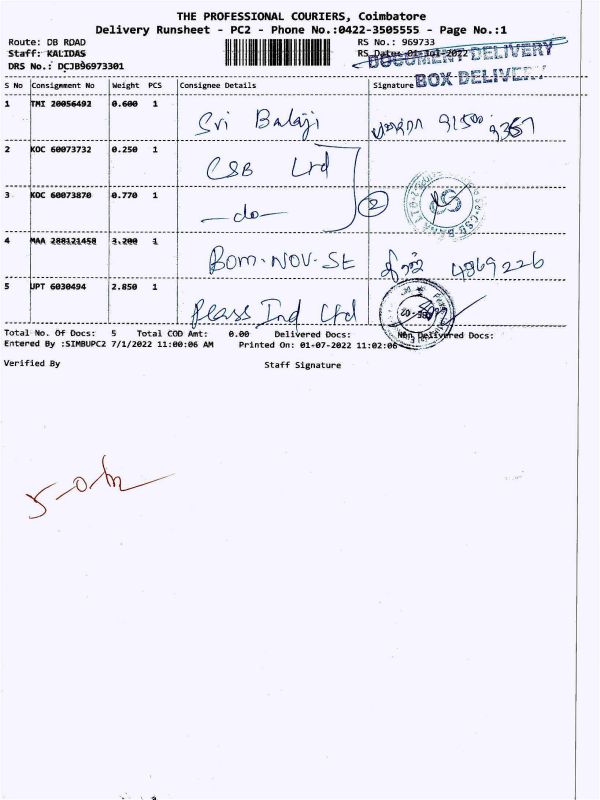 THE PROFESSIONAL COURIERS, Coimbatore
Delivery Runsheet - PC2 - Phone No.:0422-3505555 - Page No.:1
Route: DB ROAD RS No.: 969733
Staff: KALIDAS RS Date: 01-Jul-2022
DRS No.: DCJB96973301
DOCUMENT DELIVERY
BOX DELIVERY
S No Consignment No Weight PCS Consignee Details Signature
1 TMI 20056492 0.600 1 Sri Balaji
2 KOC 60073732 0.250 1 CSB Ltd
3 KOC 60073870 0.770 1 —do— 2
4 MAA 288121458 3.200 1 Bom-NOV-St 4869226
5 UPT 6030494 2.850 1 Ind Ltd
Total No. Of Docs: 5 Total COD Amt: 0.00 Delivered Docs: Non Delivered Docs:
Entered By :SIMBUPC2 7/1/2022 11:00:06 AM Printed On: 01-07-2022 11:02:06
Verified By Staff Signature